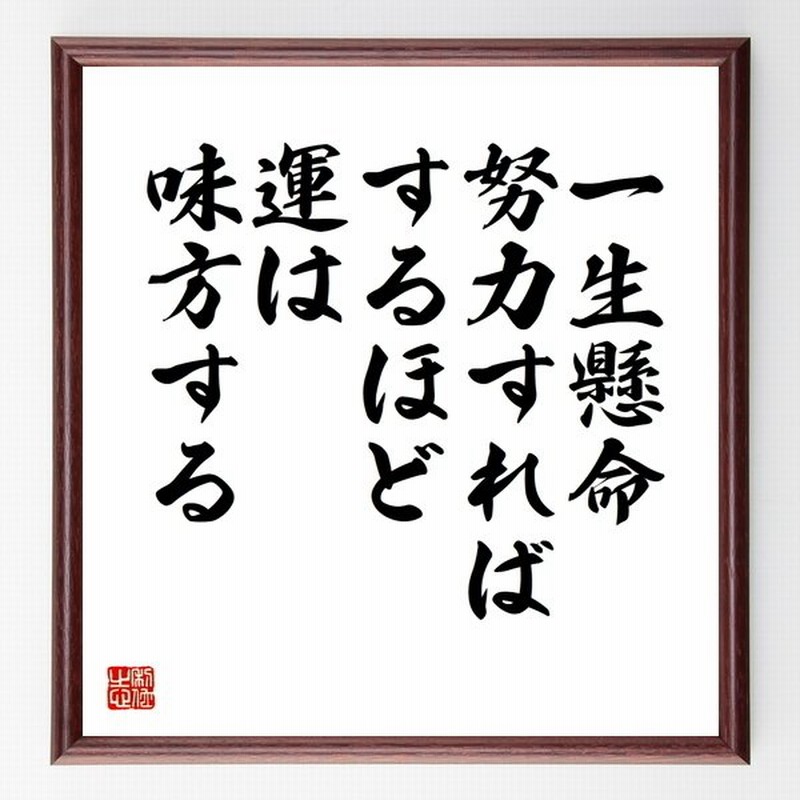 一生懸命
努力すれば
するほど
運は
味方する